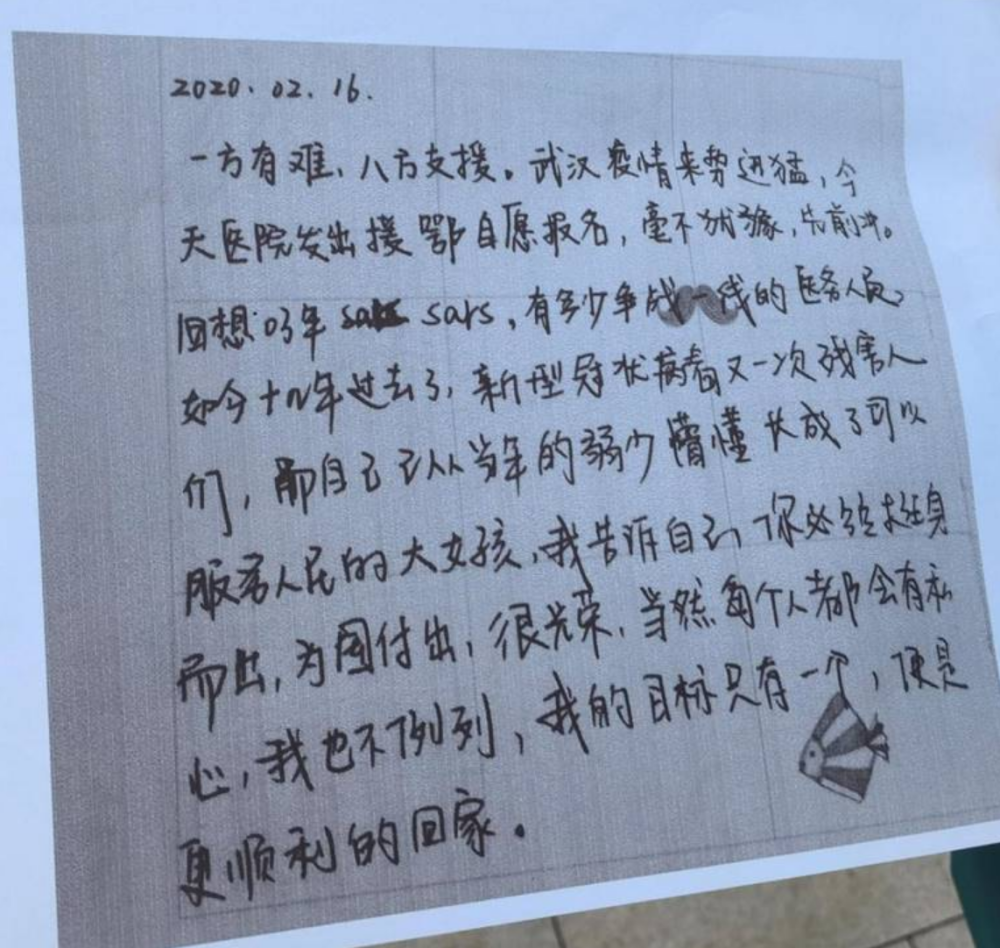 2020.02.16.
一方有难、八方支援。武汉疫情来势迅猛,今
天医院发出援鄂自愿报名,毫不犹豫,先前冲。
回想03年 sars,有多少争战一线的医务人员,
如今十几年过去了,新型冠状病毒又一次残害人
们,而自己已从当年的弱少懵懂长成了可以
服务人民的大女孩,我告诉自己,你必须挺身
而出,为国付出,很光荣,当然每个人都会有私
心,我也不例列,我的目标只有一个,便是
更顺利的回家。